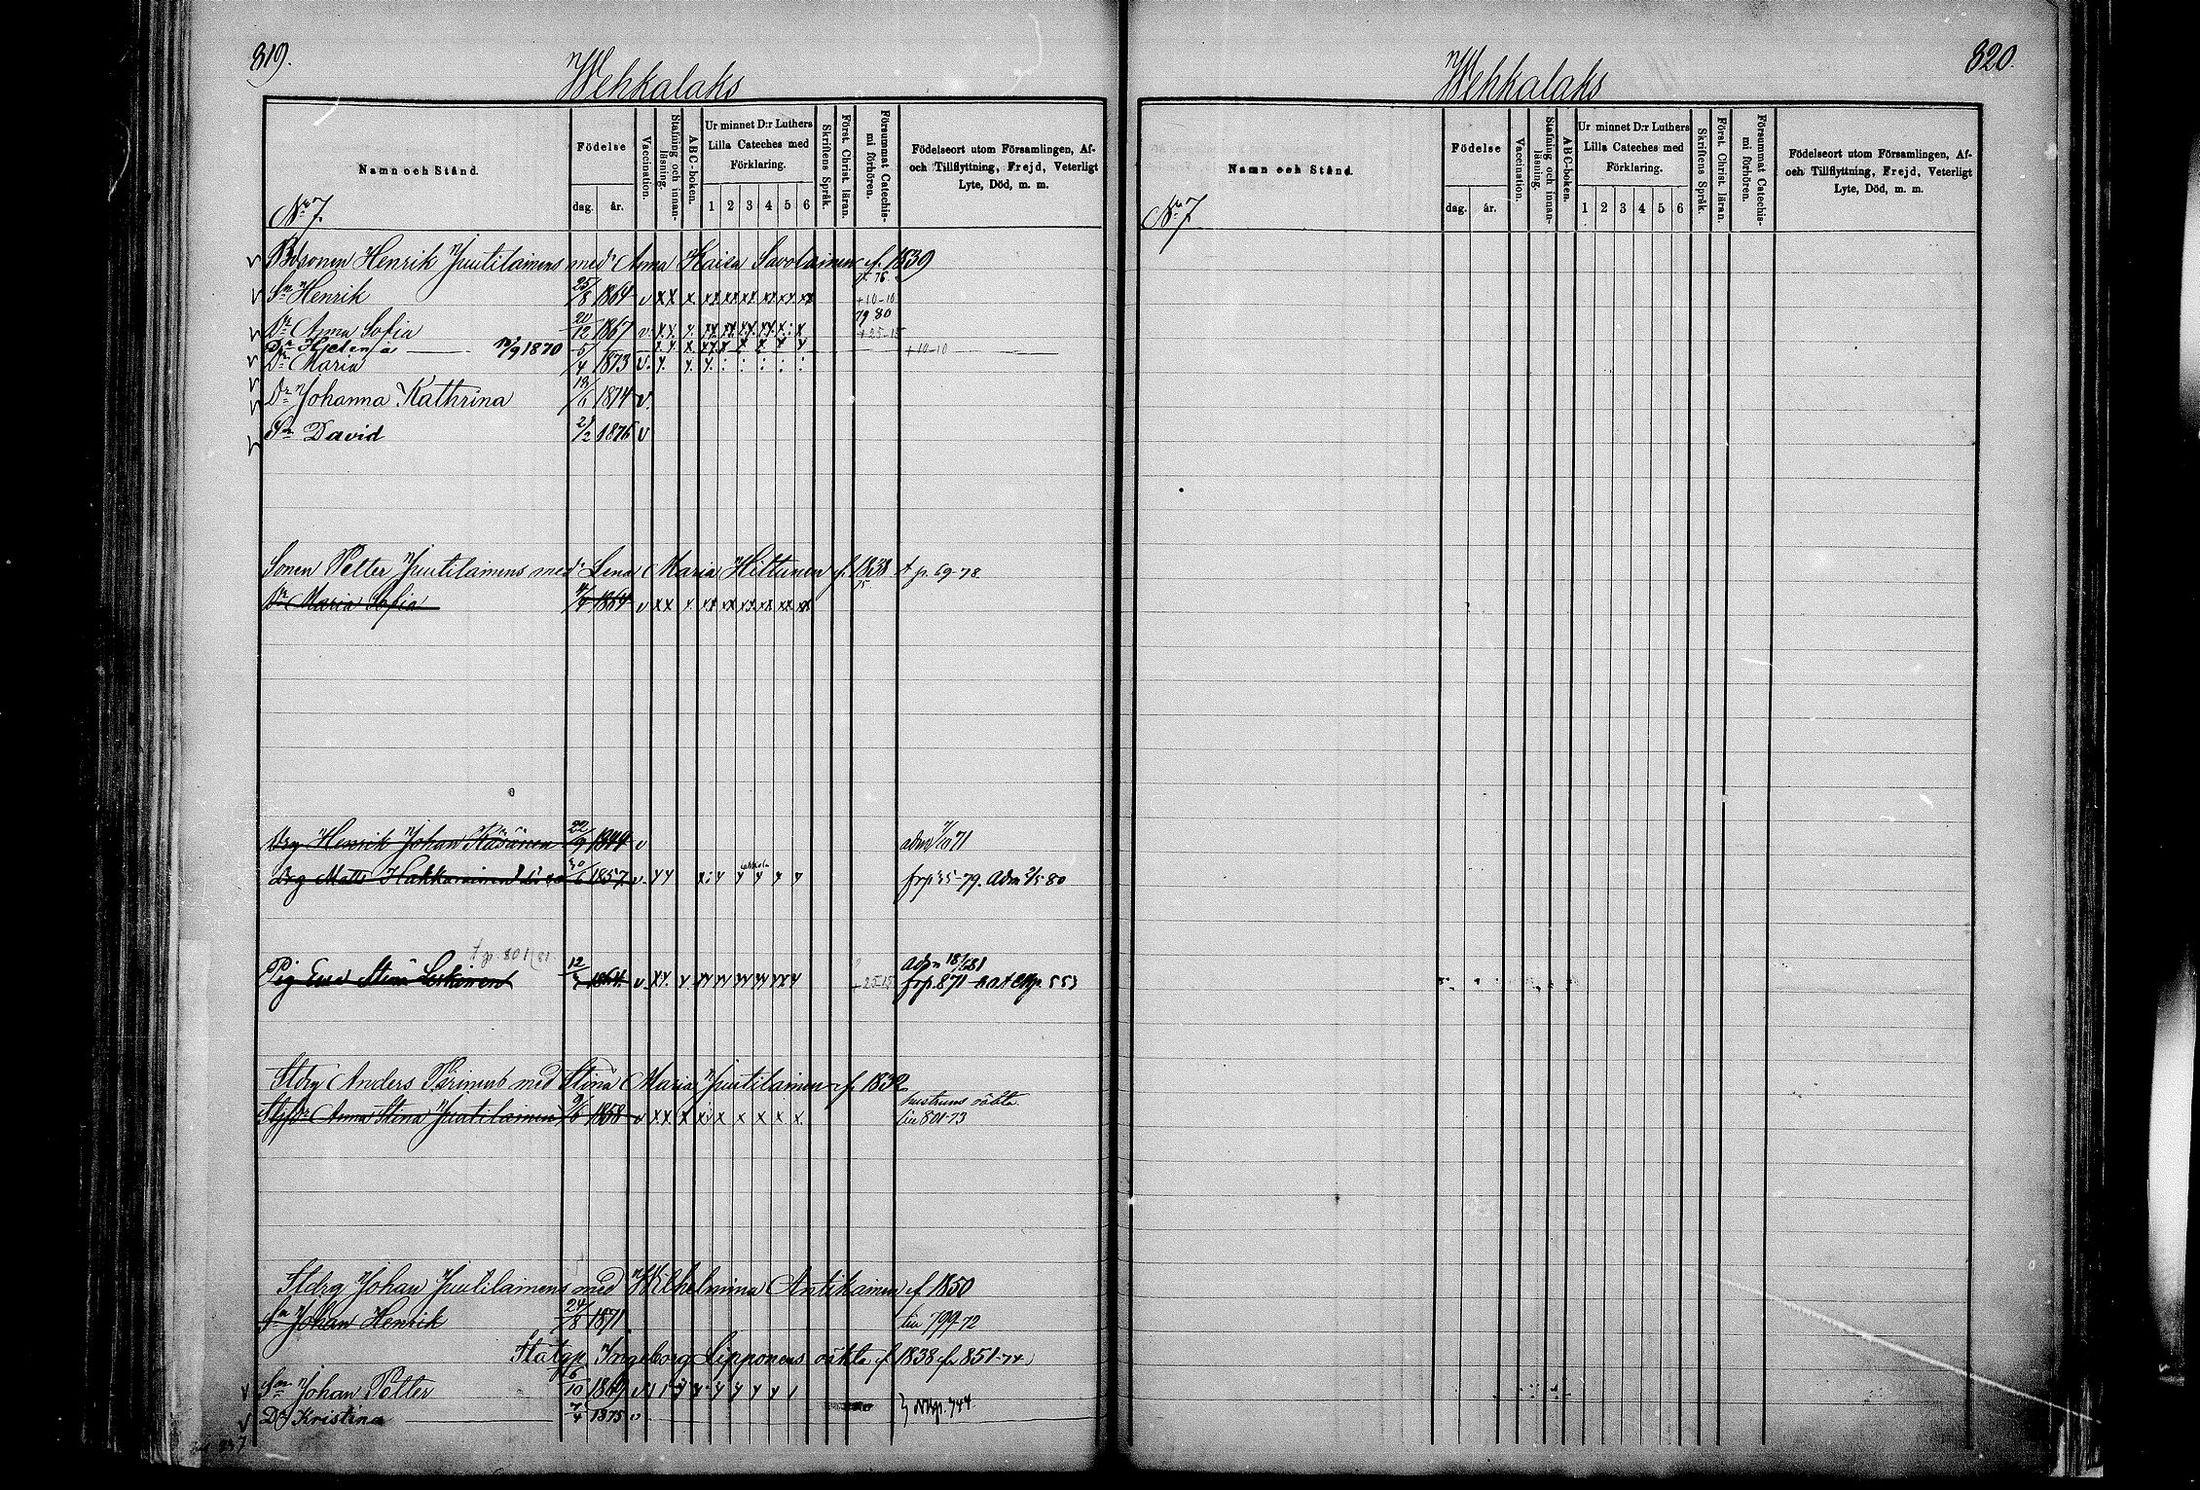 319.
Wehkalaks
Namn och Stånd.
Födelse
dag. år.
Vaccination.
Stafning och innanläsning.
ABC-boken.
Ur minnet D:r Luthers Lilla Cateches med Förklaring.
1 2 3 4 5 6
Skriftens Språk.
Först. Christ. läran.
Försummat Catechismi förhören.
Födelseort utom Församlingen, Af- och Tillflyttning, Frejd, Veterligt Lyte, Död, m. m.
No 7.
Bdsonen Henrik Juutilainens med Anna Kaisa Savolainen f. 1839
Sn Henrik 25/8 1864 v
+10-10
Dr Anna Sofia 20/12 1867 v
79 80
+25-15
Dr Helena 1870
+10-10
Dr Maria 5/4 1873 v.
Dr Johanna Kathrina 13/6 1874 v.
Sn David 2/2 1876 v
Sonen Petter Juutilainens med Lena Maria Hiltunen f. 1838 p. 69-78
Dr Maria Sofia 1864 v
Drg Henrik Johan Räsänen 22/9 1844 v 71
Drg Matts Hakkarainen 30/6 1857 v. frp 35-79. Adm 2/5 80
Pig Eva Stina Leskinen 12 1864 v.
frp 871
Stdrg Anders Brinus med Stina Maria Juutilainen f. 1832
Anna Stina Juutilainen 9/6 1858 v
hustruns oäkta
801-73
Stdrg Johan Juutilainens med Wilhelmina Antikainen f. 1850
Sn Johan Henrik 24/8 1871 799-72
Ingeborg Lipponens oäkta f. 1838 fr 851-74
Sn Johan Petter 16/10 1869
Dr Kristina 7/4 1875 v
744
820.
Wehkalaks
Namn och Stånd.
Födelse
dag. år.
Vaccination.
Stafning och innanläsning.
ABC-boken.
Ur minnet D:r Luthers Lilla Cateches med Förklaring.
1 2 3 4 5 6
Skriftens Språk.
Först. Christ. läran.
Försummat Catechismi förhören.
Födelseort utom Församlingen, Af- och Tillflyttning, Frejd, Veterligt Lyte, Död, m. m.
No 7